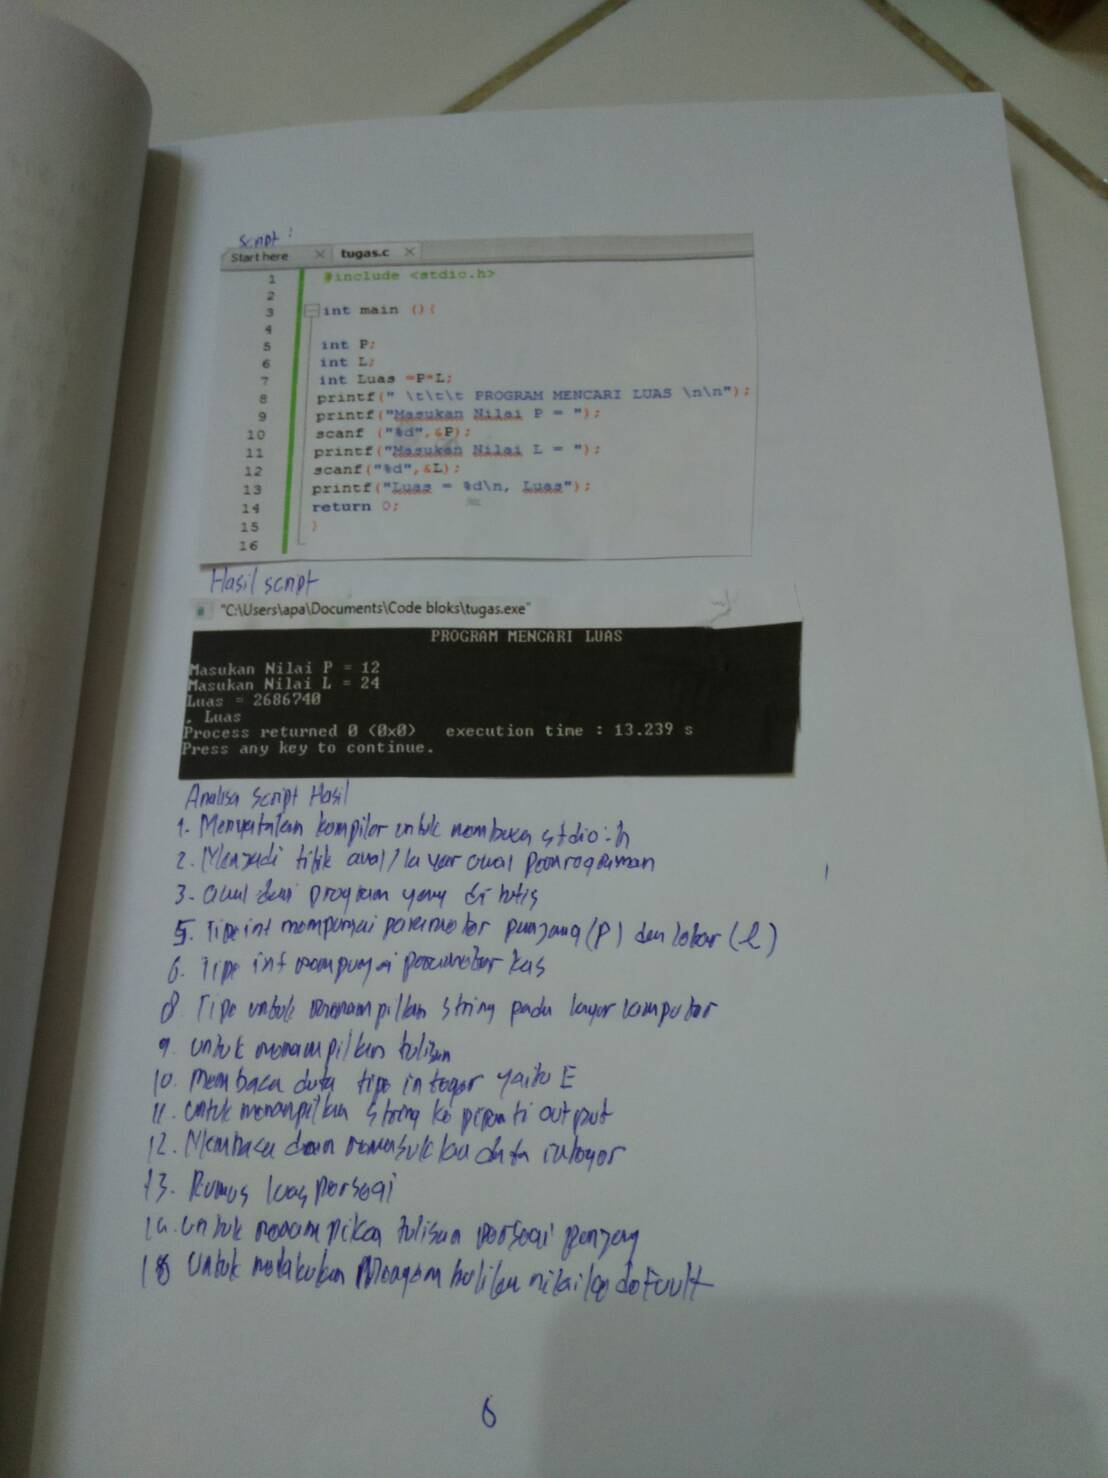 Script :
Start here × tugas.c ×
1 #include <stdio.h>
2
3 int main (){
4
5 int P;
6 int L;
7 int Luas =P*L;
8 printf(" \t\t\t PROGRAM MENCARI LUAS \n\n");
9 printf("Masukan Nilai P = ");
10 scanf ("%d",&P);
11 printf("Masukan Nilai L = ");
12 scanf("%d",&L);
13 printf("Luas = %d\n, Luas");
14 return 0;
15 }
16
Hasil script
"C:\Users\apa\Documents\Code bloks\tugas.exe"
PROGRAM MENCARI LUAS
Masukan Nilai P = 12
Masukan Nilai L = 24
Luas = 2686740
, Luas
Process returned 0 (0x0) execution time : 13.239 s
Press any key to continue.
Analisa Script Hasil
1. Menyatakan kompiler untuk membuca stdio.h
2. Menjadi titik awal / layar awal pemrograman
3. awal dari program yang di tulis
5. Tipe int mempunyai parameter panjang (P) dan lebar (l)
6. Tipe int mempunyai parameter
8. Tipe untuk menampilkan string pada layar komputer
9. untuk menampilkan tulisan
10. Membaca data tipe integer yaitu E
11. untuk menampilkan string ke piranti output
12. Membaca dan memasukkan data integer
13. Rumus luas persegi
14. untuk menampilkan tulisan persegi panjang
untuk melakukan nilai default
6